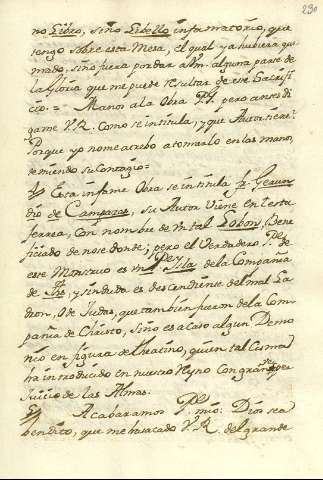 230
no Libro, sino Libello infamatorio, que
tengo sobre esta Mesa, el qual ya hubiera que
mado, sino fuera por dar a Vm. alguna parte de
la Gloria que me puede resultar de ese Sacrifi
cio.= Manos a la Obra Pe. pero antes di
game V.R. como se intitula, y que Autor tiene?
Porque yo no me atrebo a tomarlo en las manos,
temiendo su Contagio=
Esta infame Obra se intitula Fr. Gerun
dio de Campazas, su Autor viene en la sta
ferrea, con nombre de un tal Lobon, Bene
ficiado de no se donde; pero el Verdadero Pe. de
este Monstruo es un Pe. Isla de la Compañia
de Jhs, y sin duda es descendiente del mal La
dron, o de Judas, que tambien fueron de la Com
pañia de Christo, si no es acaso algun Demo
nio en figura de theatino, quien tal
ha introducido en nuestro Reyno con grande per
juicio de las Almas.
Acabaramos Pe. mio: Dios sea
bendito, que me ha sacado V.R. del grande